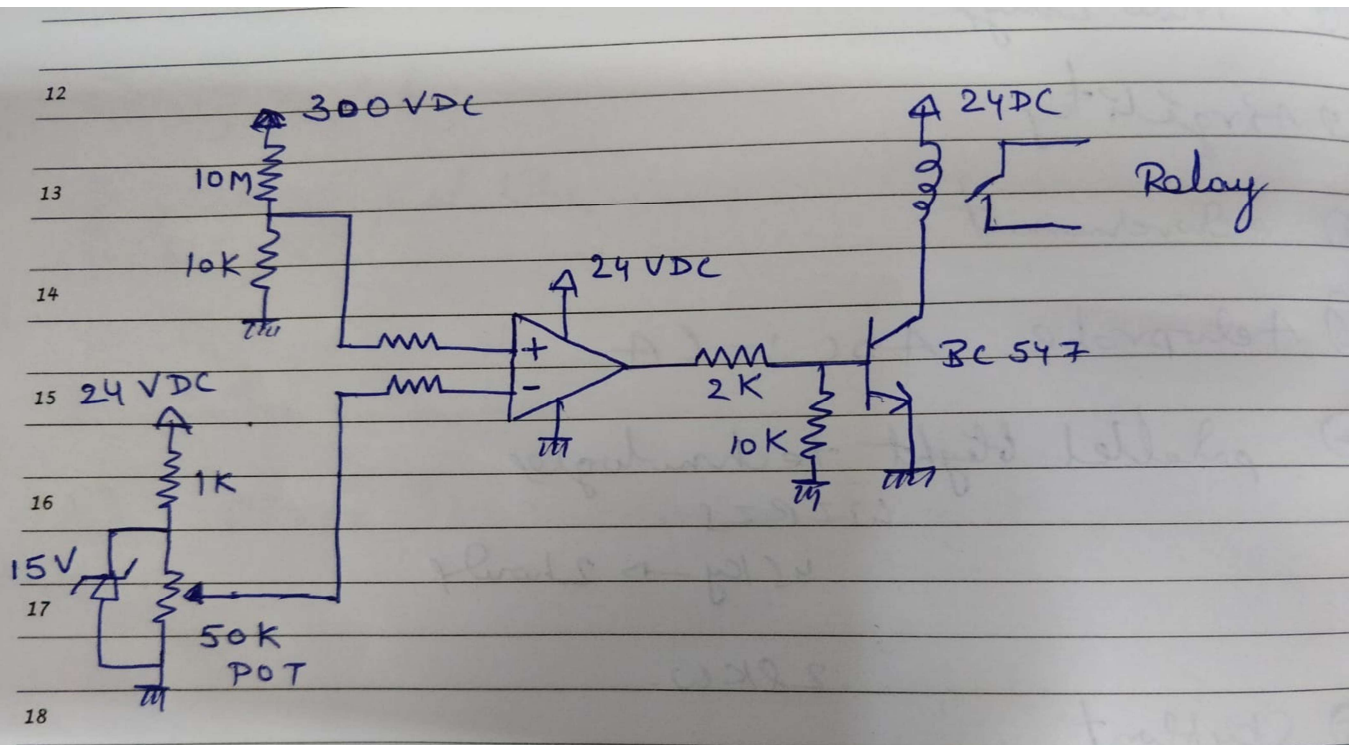 12
300 VDC
24DC
10M
13
Relay
10K
24 VDC
14
+
-
BC 547
15
24 VDC
2K
10K
1K
16
15V
17
50K
POT
18